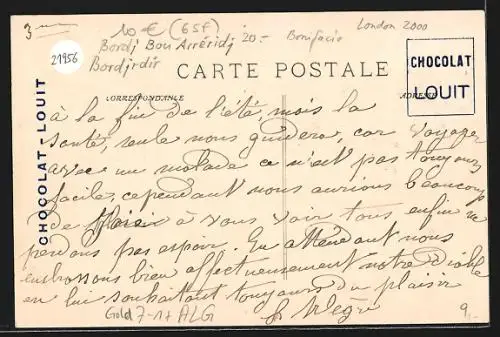 3
10 € (65f)
London 2000
21956
Bordj Bou Arréridj 20.- Bonifacio
Bordjrdir
CARTE POSTALE
CHOCOLAT
LOUIT
CORRESPONDANCE
ADRESSE
CHOCOLAT-LOUIT
à la fin de l'été, mois la
santé, seule nous guidera, car voyager
avec un malade ce n'est pas toujours
facile, cependant nous aurions beaucoup
de plaisir à vous voir tous enfin ne
perdons pas espoir. En attendant nous
embrassons bien affectueusement notre
en lui souhaitant toujours du plaisir
Gold 7-17 ALG
9,-